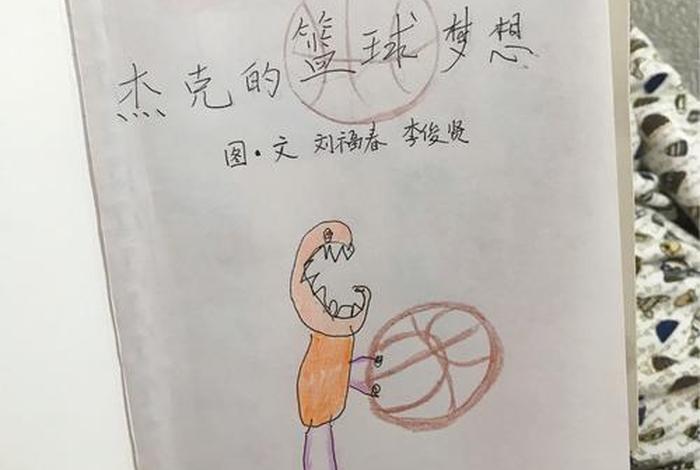 杰克的篮球梦想
图·文 刘福春 李俊贤